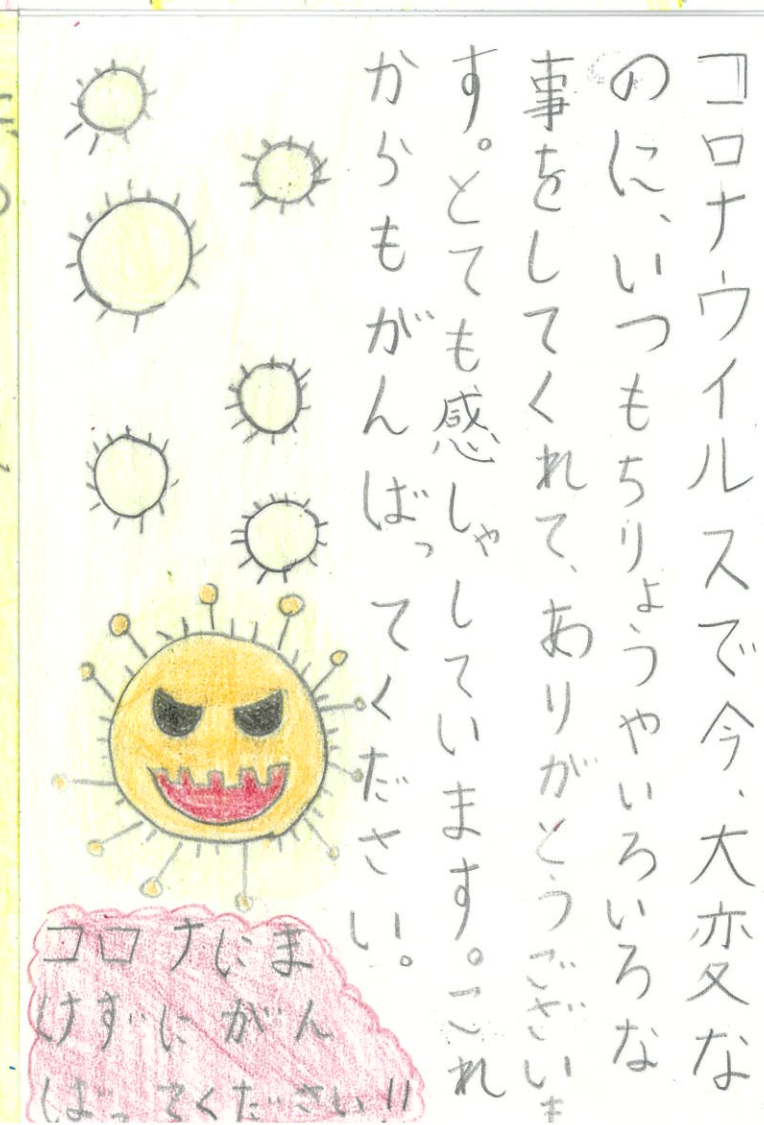 コロナウイルスで今、大変な
のに、いつもちりょうやいろいろな
事をしてくれて、ありがとうございま
す。とても感しゃしています。これ
からもがんばってください。
コロナにま
けずにがん
ばってください!!